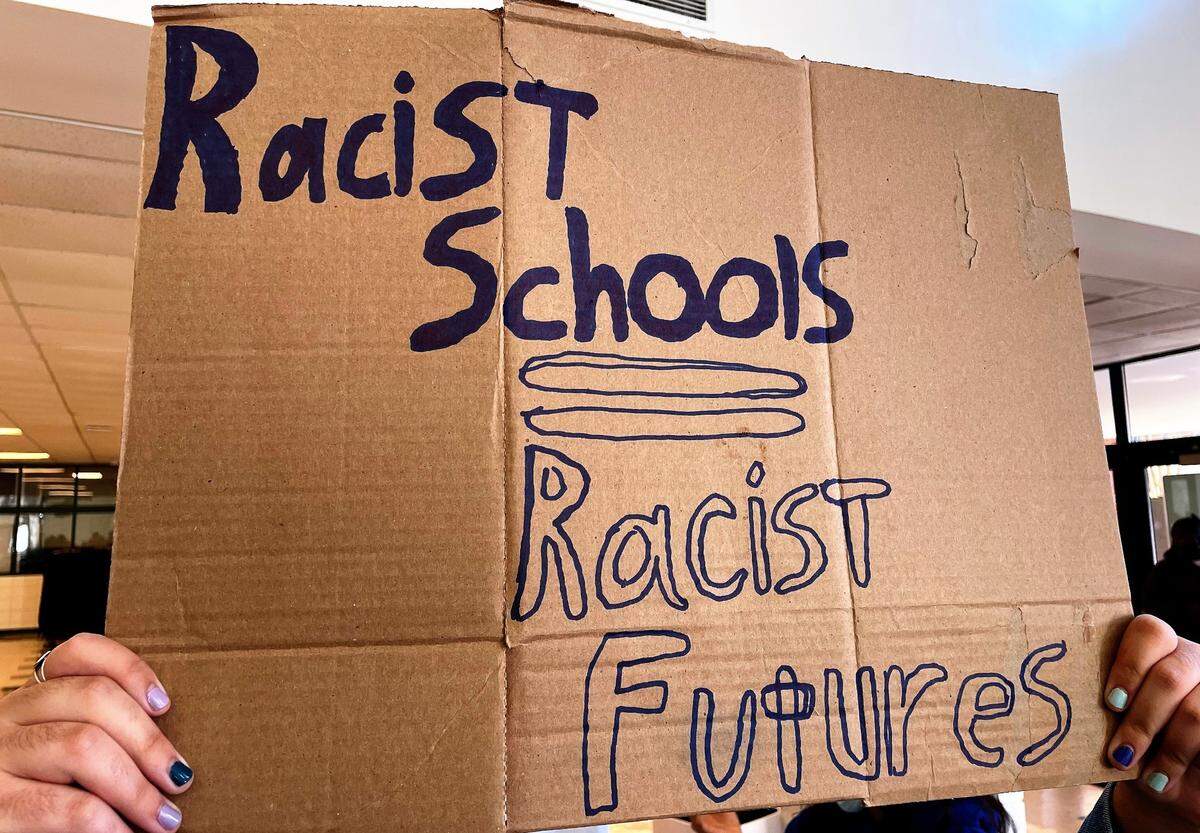 RaciST
Schools
=
RacisT
FutureS